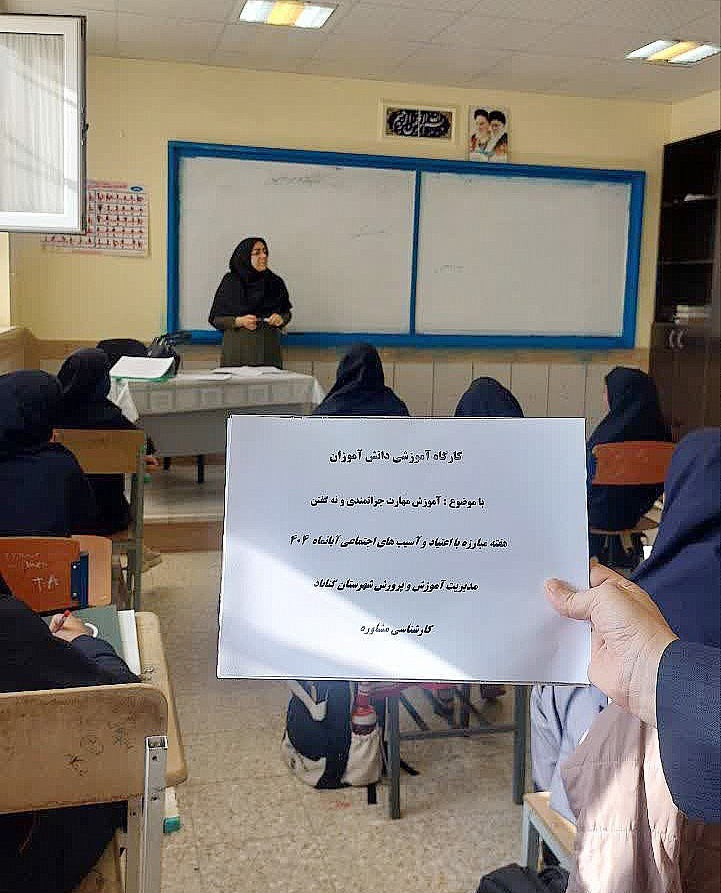 کارگاه آموزشی دانش آموزان
با موضوع : آموزش مهارت جراتمندی و نه گفتن
هفته مبارزه با اعتیاد و آسیب های اجتماعی آبانماه ۴۰۴
مدیریت آموزش و پرورش شهرستان گناباد
کارشناسی مشاوره